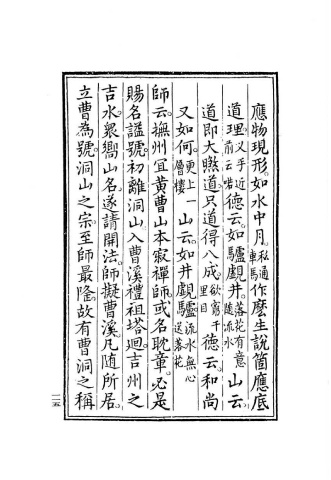 應物現形。如水中月。私通車馬作麼生說箇應底
道理。又乎近前云喏德云。如驢覷井。落花有意隨流水山云。
道即大煞道。只道得八成。欲窮千里目德云。和尚
又如何。更上一層樓山云。如井覷驢。流水無心送落花
師云。撫州宜黃曹山本寂禪師。或名耽章。必是
賜名謚號。初離洞山入曹溪禮祖塔。廻吉州之
吉水。衆嚮山名。遂請開法。師擬曹溪。凡隨所居。
立曹為號。洞山之宗。至師最隆。故有曹洞之稱
一二五